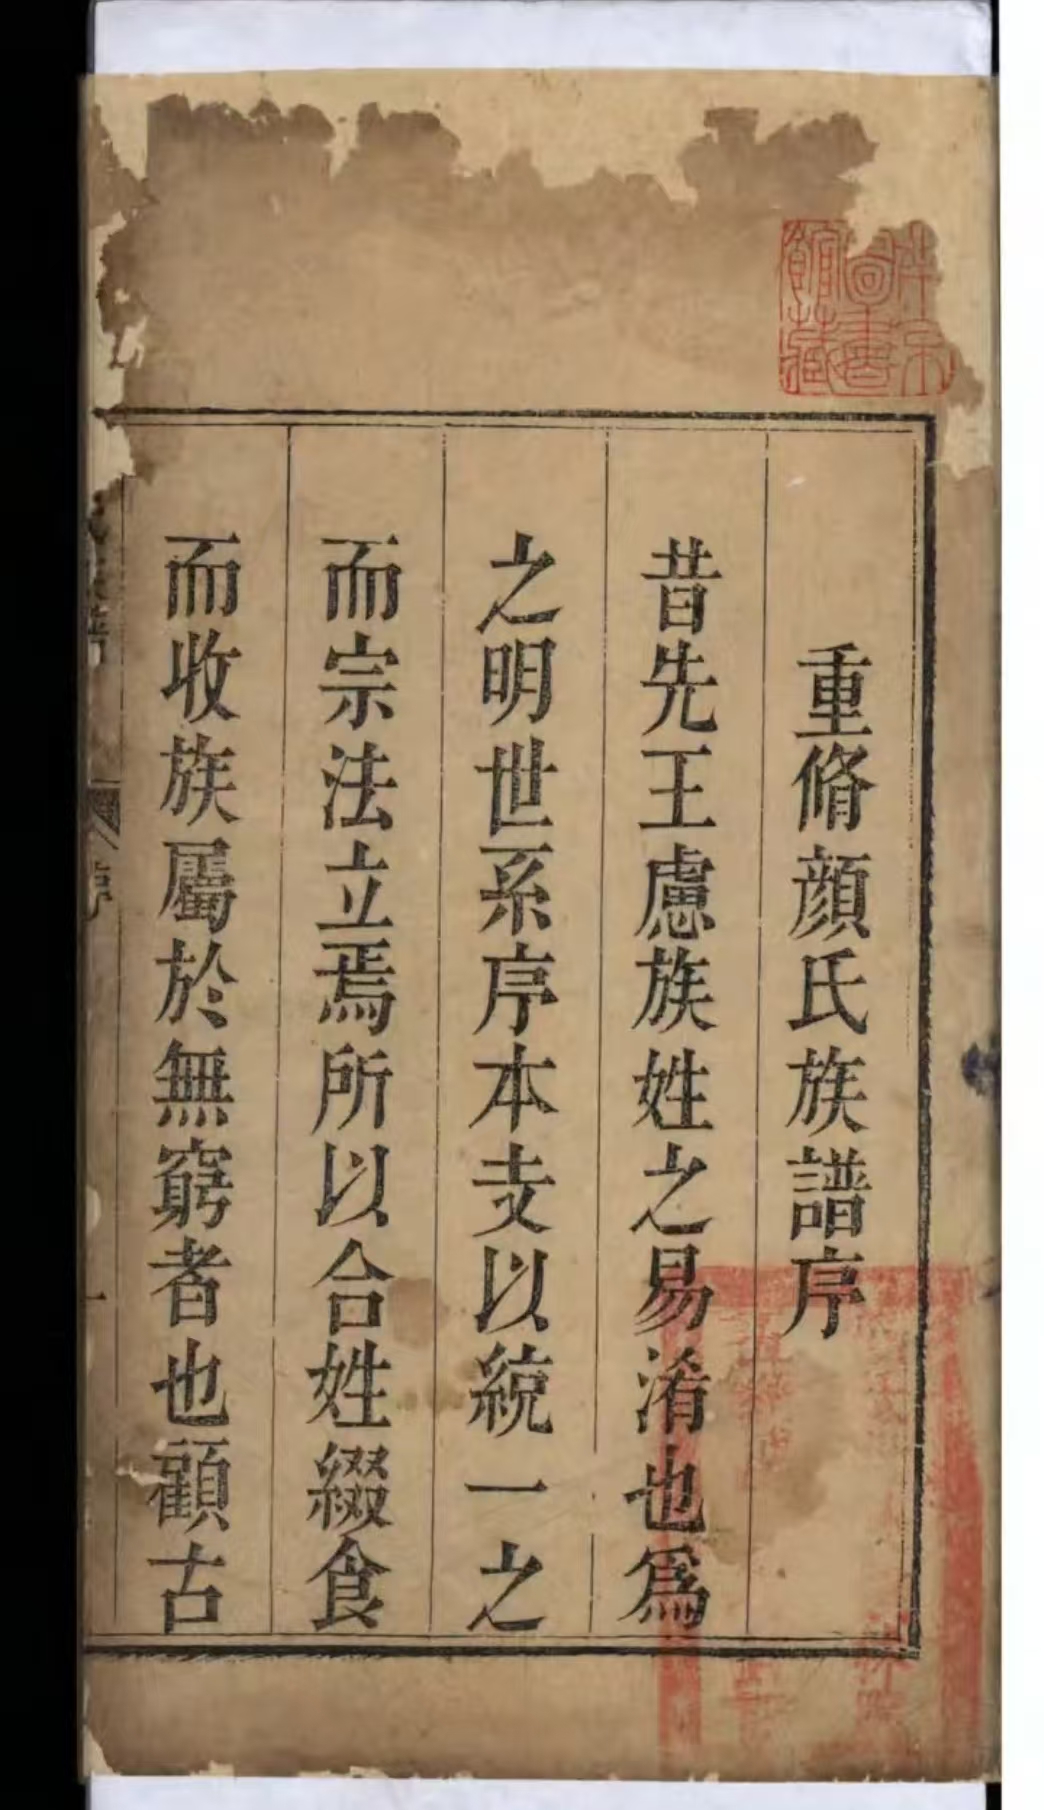 重脩顏氏族譜序
昔先王慮族姓之易淆也爲
之明世系序本支以統一之
而宗法立焉所以合姓綴食
而收族屬於無窮者也顧古
圖書
館藏
序
一